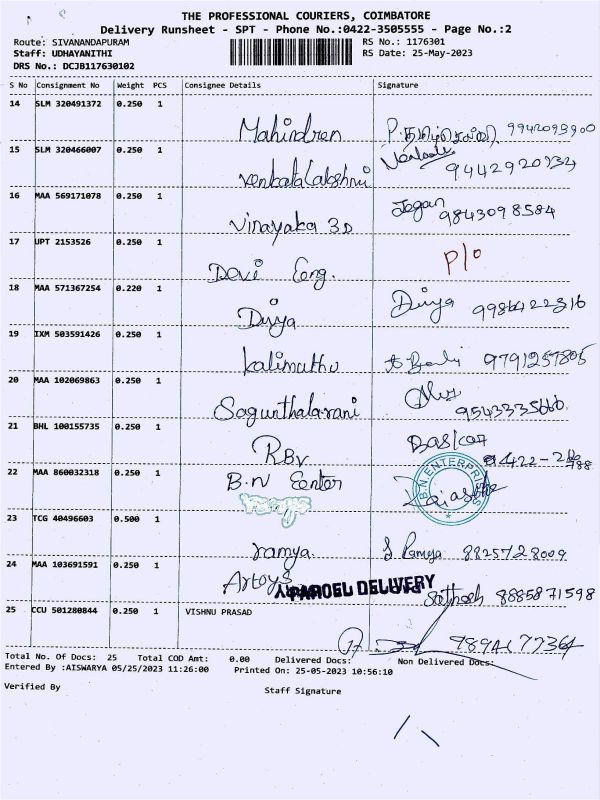 THE PROFESSIONAL COURIERS, COIMBATORE
Delivery Runsheet - SPT - Phone No.:0422-3505555 - Page No.:2
Route: SIVANANDAPURAM RS No.: 1176301
Staff: UDHAYANITHI RS Date: 25-May-2023
DRS No.: DCJB117630102
S No Consignment No Weight PCS Consignee Details Signature
14 SLM 320491372 0.250 1
Mahindren 9942099900
15 SLM 320466007 0.250 1
Venkatalakshmi 9442920934
16 MAA 569171078 0.250 1
Vinayaka 3D Jegan 9843098584
17 UPT 2153526 0.250 1
Devi Eng. P/o
18 MAA 571367254 0.220 1
Divya Divya 9986422316
19 IXM 503591426 0.250 1
Kalimuthu 9791257805
20 MAA 102069863 0.250 1
Sagunthalarani 9543335666
21 BHL 100155735 0.250 1
RBV Baskar
22 MAA 860032318 0.250 1
B.N Center B.N ENTERPRISES
23 TCG 40496603 0.500 1
ramya. S Ramya 8825728009
24 MAA 103691591 0.250 1
Artoys PARCEL DELIVERY Sathosh 8885871598
25 CCU 501280844 0.250 1 VISHNU PRASAD
Total No. Of Docs: 25 Total COD Amt: 0.00 Delivered Docs: Non Delivered Docs:
Entered By :AISWARYA 05/25/2023 11:26:00 Printed On: 25-05-2023 10:56:10
Verified By Staff Signature